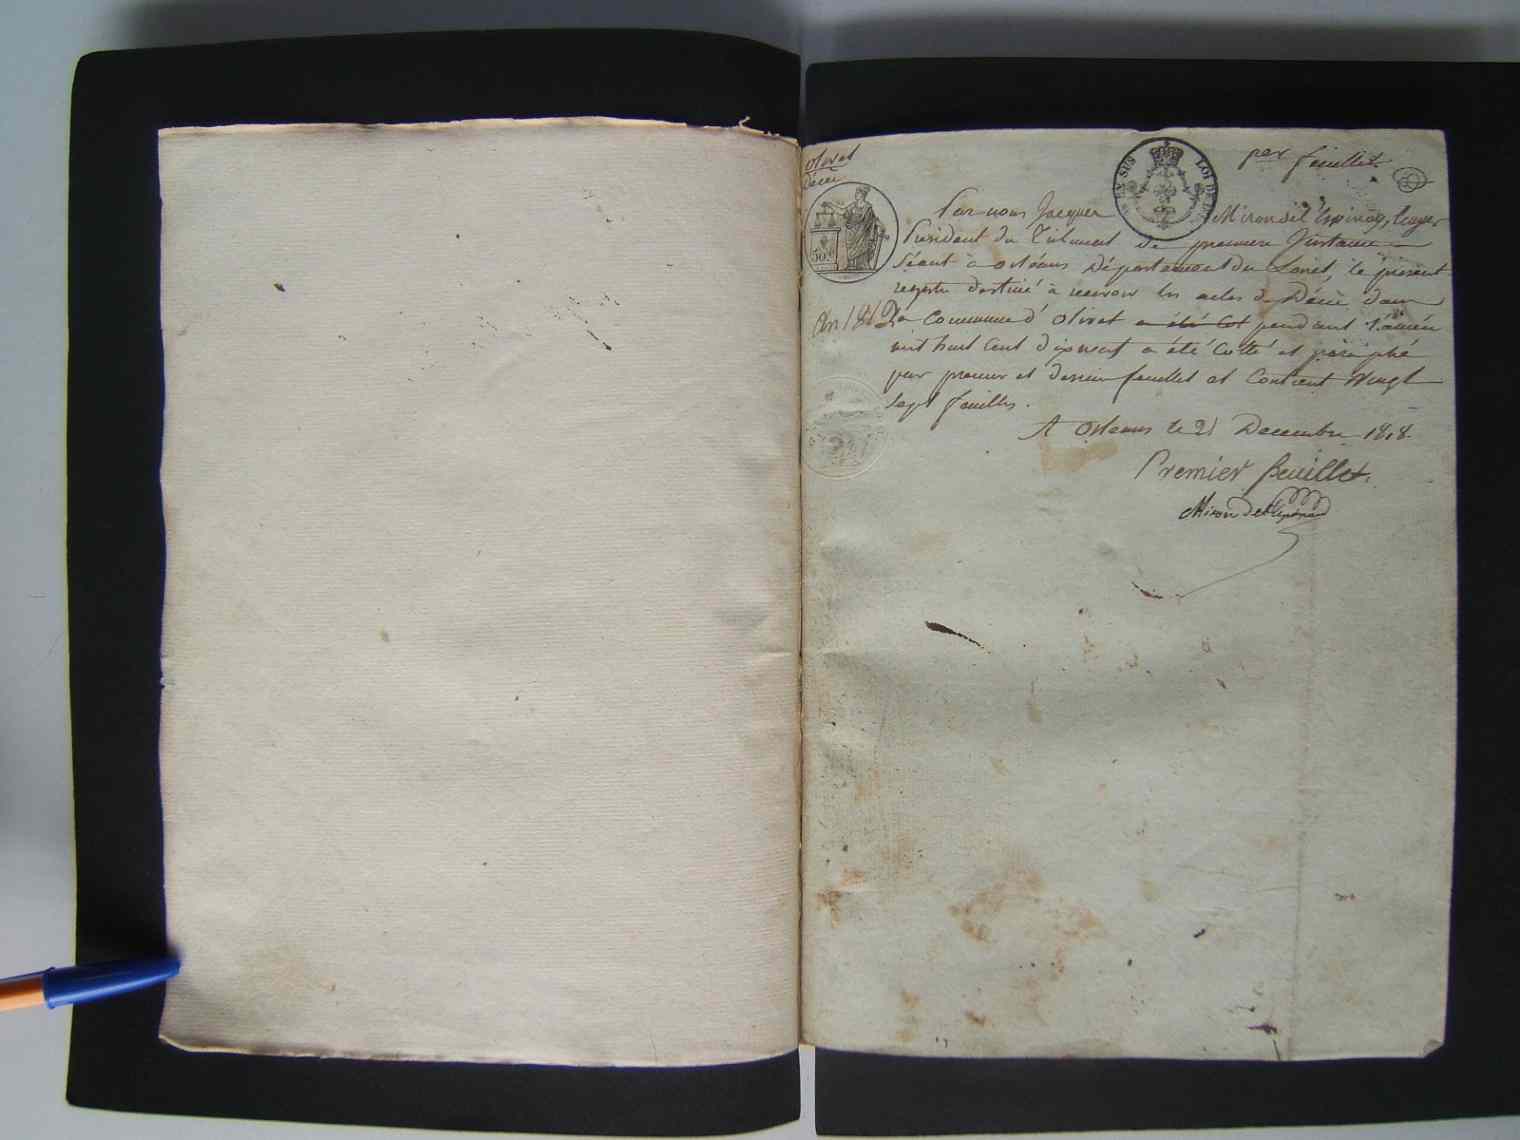 olivet
Décès
per feuillet.
EN SUS LOI DE
50 c
Par nous Jacques Miron de l'Espinay, Ecuyer
Président du Tribunal de première Instance
Séant à orléans Département du Loiret, le présent
registre destiné à recevoir les actes de Décès dans
An 1819
la Commune d'olivet a été Cot pendant l'année
mil huit Cent dix neuf a été Cotté et paraphé
par premier et dernier feuillet et Contient Vingt
Sept feuilles.
A Orléans le 21 Decembre 1818.
Premier feuillet.
Miron de l'Espinay